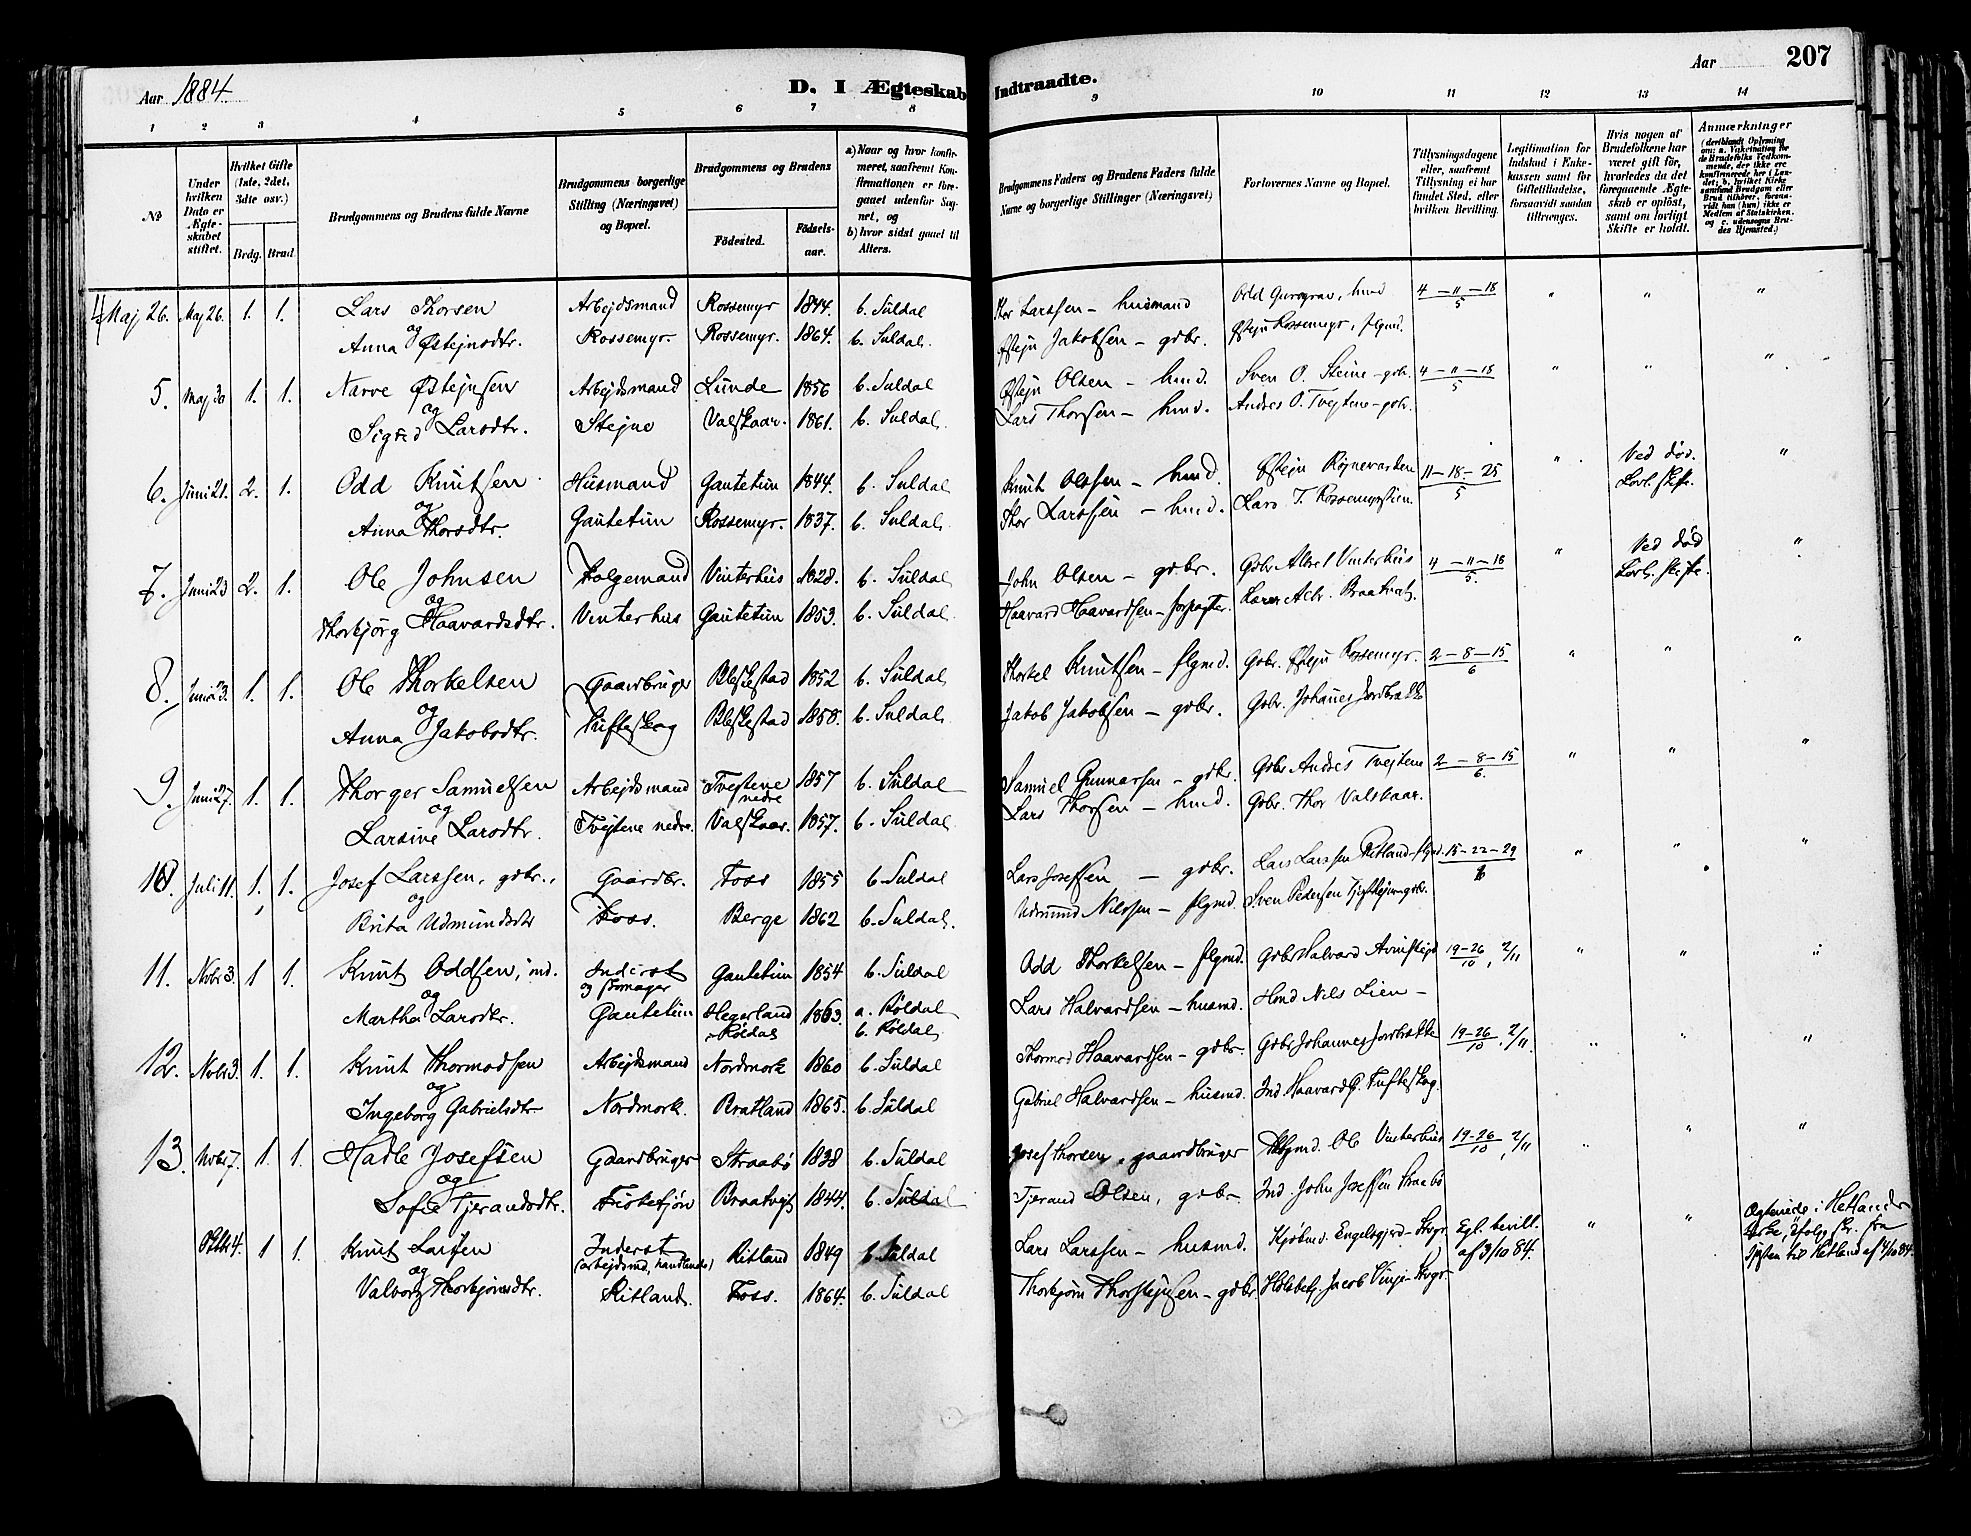 Aar 1884.
D. I Ægteskab Indtraadte.
Aar
207
1 2 3 4 5 6 7 8 9 10 11 12 13 14
No
Under hvilken Dato er Ægteskabet stiftet.
Hvilket Gifte (1ste, 2det, 3die osv.)
Brdg. Brud.
Brudgommens og Brudens fulde Navne
Brudgommens borgerlige Stilling (Næringsvei) og Bopæl.
Brudgommens og Brudens
Fødested.
Fødselsaar.
a) Naar og hvor konfirmeret, saafremt Konfirmationen er foregaaet udenfor Sognet, og
b) hvor sidst gaaet til Alters.
Brudgommens Faders og Brudens Faders fulde Navne og borgerlige Stillinger (Næringsvei)
Forlovernes Navne og Bopæl.
Tillysningsdagene eller, saafremt Tillysning ei har fundet Sted, efter hvilken Bevilling.
Legitimation for Indskud i Enkekassen samt for Giftetilladelse, forsaavidt saadan tiltrænges.
Hvis nogen af Brudefolkene har været gift før, hvorledes da det foregaaende Ægteskab er opløst, samt om lovligt Skifte er holdt.
Anmærkninger (deriblandt Oplysning om: a. Vakcination for de Brudefolks Vedkommende, der ikke ere konfirmerede her i Landet; b. hvilket Kirkesamfund Brudgom eller Brud tilhører, forsaavidt han (hun) ikke er Medlem af Statskirken, og c. udensogns Brudes Hjemsted.)
4 Maj 26. Maj 26. 1. 1. Lars Thorsen Arbejdsmand Rossemyr 1844. b. Suldal Thor Larssen - husmand Odd , hmd 4 - 11 - 18 " " "
og
Anna Østejnsdtr. Rossemyr. Rossemyr. 1864. b. Suldal. Østejn Jakobsen - gdbr. Østejn Rossemyr, flgmd. 5
5. Maj 30 1. 1. Narve Østejnsen Arbejdsmand Lunde 1856 b. Suldal Østejn Olsen - hmd. Sven O. Steine - gdbr. 4 - 11 - 18 " " "
og
Sigrid Larsdtr. Stejne Valskaar. 1861. b. Suldal. Lars Thorsen - hmd. Andres O. Tvejtene - gdbr. 5
6. Juni 21. 2. 1. Odd Knutsen Husmand Gautetun 1844. b. Suldal Knut Olsen - hmd. Østejn Røjnevarden 11 - 18 - 25 " Ved død. "
og
Anna Thorsdtr. Gautetun Rossemyr. 1837. b. Suldal. Thor Larssen - hmd. Lars T. 5 Lovl. skifte.
7. Juni 23 2. 1. Ole Johnsen Folgemand Vinterhus 1828. b. Suldal John Olsen - gdbr. Gdbr. Vinterhus 4 - 11 - 18 " Ved død "
og
Thorbjørg Haavardsdtr. Vinterhus Gautetun 1853. b. Suldal Haavard Haavardsen - forpagter. 5. Lovl. skifte.
8. Juni 23. 1. 1. Ole Thorkelsen Gaardbruger Bleskestad 1852 b. Suldal Thorkel Knutsen - flgmd. Gdbr. Østejn Rossemyr. 2 - 8 - 15 " " "
og
Anna Jakobsdtr. Tufteskog Bleskestad 1858. b. Suldal. Jakob Jakobsen - gdbr. Gdbr. Johannes Jordbrekke 6
9. Juni 27. 1. 1. Thorger Samuelsen Arbejdsmand Tvejtene nedre 1857 b. Suldal Samuel Gunnarsen - gdbr. Gdbr. Andres Tvejtene 2 - 8 - 15 " " "
og
Larsine Larsdtr. Tvejtene nedre. Valskaar. 1857. b. Suldal Lars Thorsen - hmd. Gdbr. Thor Valskaar. 6.
10. Juli 11. 1. 1. Josef Larssen, gdbr., Gaardbr. Foss 1855 b. Suldal Lars Josefsen - gdbr. Lars Larssen Ritland - flgmd. 15 - 22 - 29 " " "
og
Brita Udmundsdtr Foss. Berge 1862 b. Suldal. Udmund Nilssen - flgmd. Sven Pedersen - gdbr. 6
11. Novbr 3. 1 1. Knut Oddsen, ind. Inderst og skomager Gautetun 1854 b. Suldal Odd Thorkelsen - flgmd. Gdbr Halvard 19 - 26/10, 2/11 " " "
og
Martha Larsdtr. Gautetun Hegerland Røldal 1863. a. Røldal b. Røldal Lars Halvardsen - husmd. Hmd Nils Lien -
12. Novbr 3. 1. 1. Knut Thormodsen Arbejdsmand Nordmork 1860 b. Suldal Thormod Haavardsen - gdbr. Gdbr Johannes Jordbrekke 19 - 26/10, 2/11. " " "
og
Ingeborg Gabrielsdtr Nordmork. Bratland 1865. b. Suldal Gabriel Halvardsen - husmd. Ind. Haavard G. Tufteskog.
13. Novbr 7. 1. 1. Hadle Josefsen Gaardbruger Straabø 1838 b. Suldal Josef Thorsen, gaardbruger Flgmd. Ole Vinterhus 19 - 26/10, 2/11 " " "
og
Sofie Tjerandsdtr. Fiskekjøn Braatvejt 1844. b. Suldal Tjerand Olsen, gdbr - Ind. John Josefsen Straabø
Oktbr 4. 1 1. Knut Larsen Inderst (arbejdsmd, handlende) Ritland 1849 b. Suldal Lars Larssen - husmd. Kjøbmd. Engelsgjerd - Stvgr. Kgl. bevill. af 3/10 84. " " Ægteviede i Hetlands Kirke, ifølge skr. fra Spsten til Hetland af 4/10 84.
og
Valborg Thorbjørnsdtr. Ritland. Foss. 1864. b. Suldal Thorbjørn Thorstejnsen - gdbr Jacob Vinje - Stvgr.